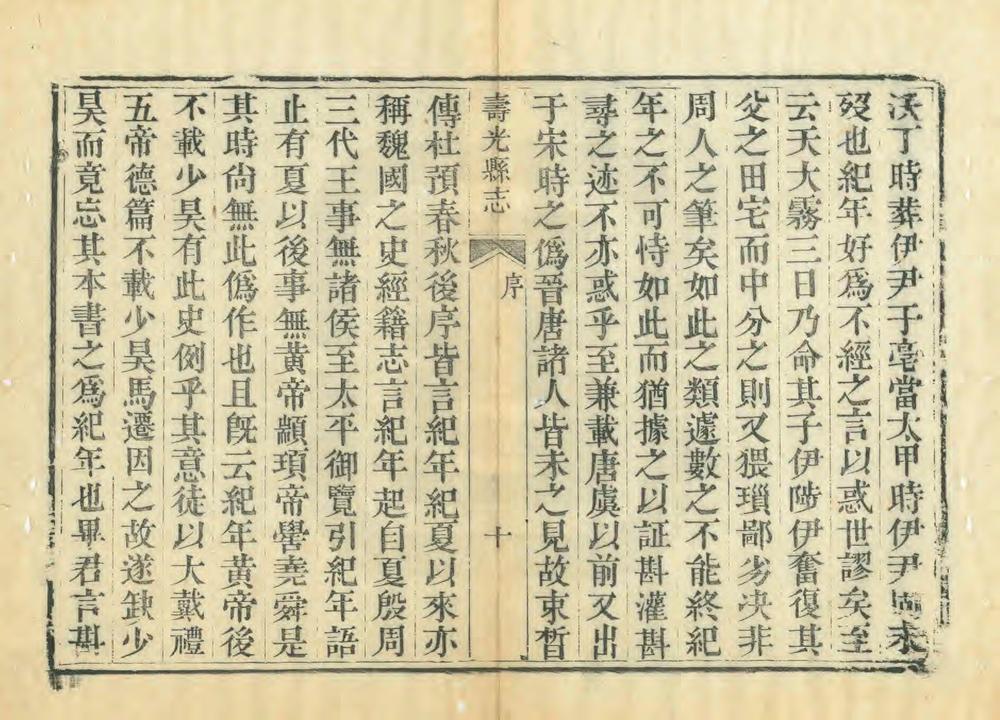 沃丁時葬伊尹于亳當太甲時伊尹固未
歿也紀年好爲不經之言以惑世謬矣至
云天大霧三日乃命其子伊陟伊奮復其
父之田宅而中分之則又猥瑣鄙劣决非
周人之筆矣如此之類遽數之不能終紀
年之不可恃如此而猶據之以証斟灌斟
尋之迹不亦惑乎至兼載唐虞以前又出
于宋時之僞晉唐諸人皆未之見故束晳
壽光縣志 序 十
傳杜預春秋後序皆言紀年紀夏以來亦
稱魏國之史經籍志言紀年起自夏殷周
三代王事無諸侯至太平御覽引紀年語
止有夏以後事無黃帝顓頊帝嚳堯舜是
其時尙無此僞作也且旣云紀年黃帝後
不載少昊有此史例乎其意徒以大戴禮
五帝德篇不載少昊馬遷因之故遂缺少
昊而竟忘其本書之爲紀年也畢君言斟